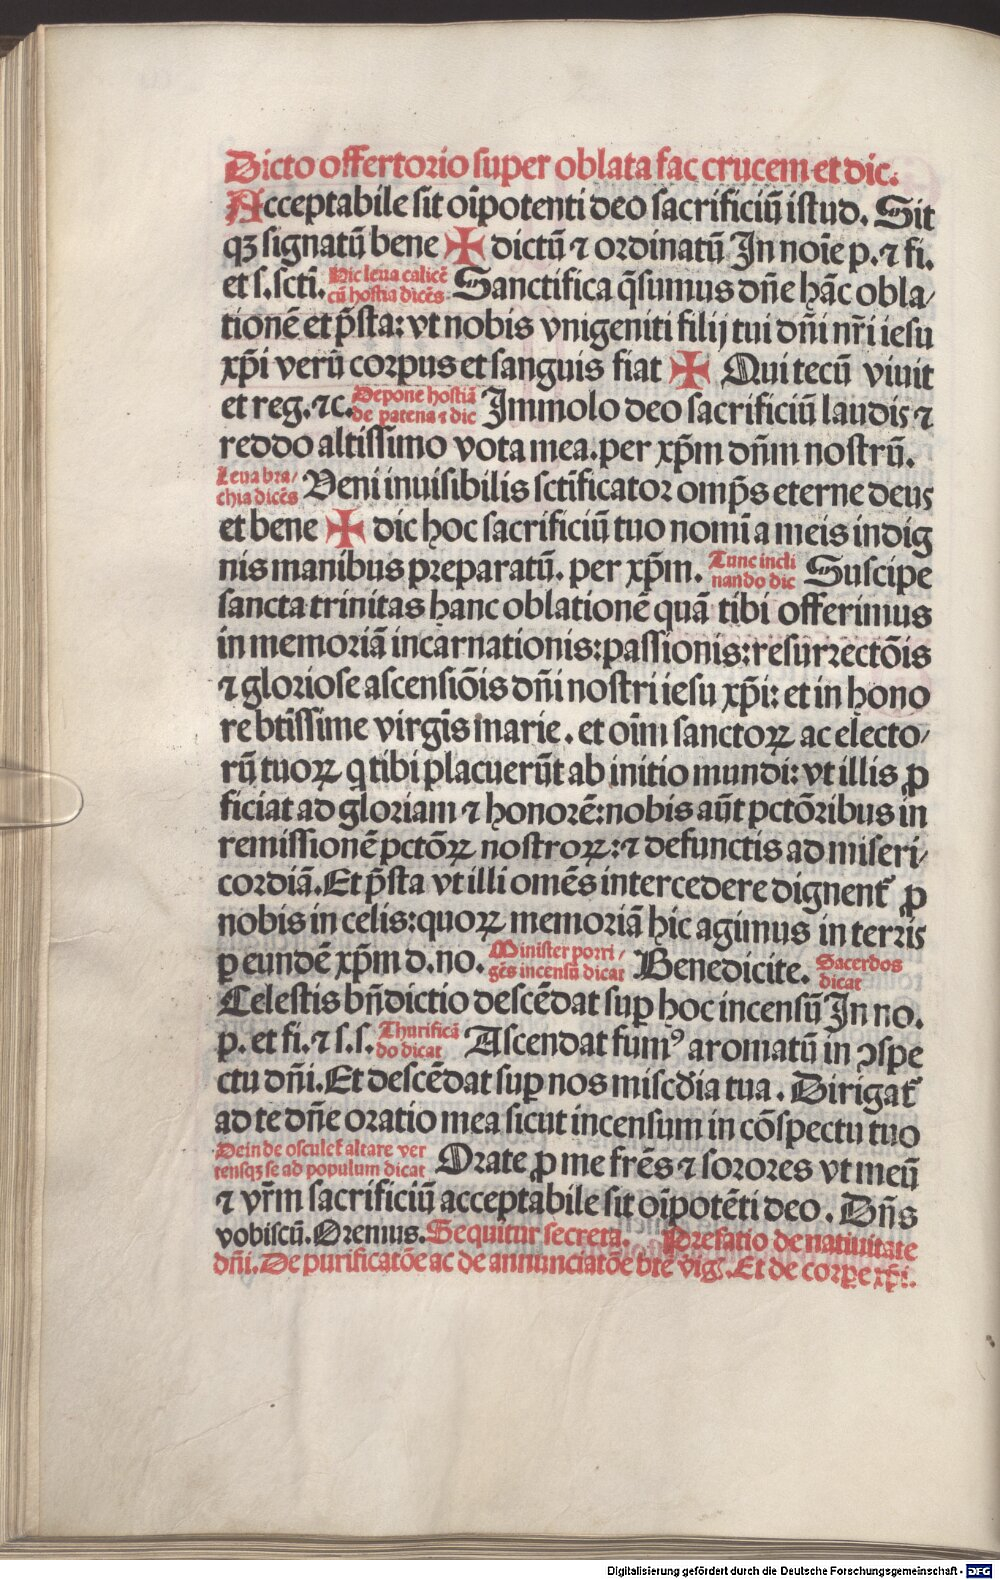 Dicto offertorio super oblata fac crucem et dic.
Acceptabile sit oīpotenti deo sacrificiū istud. Sit
qȝ signatū bene ✠ dictū ⁊ ordinatū In noīe p. ⁊ fi.
et s. scti. Hic leua calicē cū hostia dicēs Sanctifica q̄sumus dn̄e hāc obla/
tionē et p̄sta: vt nobis vnigeniti filij tui dn̄i nr̄i iesu
xp̄i verū corpus et sanguis fiat ✠ Qui tecū viuit
et reg. ⁊c. Depone hostiā de patena ⁊ dic Immolo deo sacrificiū laudis ⁊
reddo altissimo vota mea. per xp̄m dn̄m nostrū.
Leua bra/chia dicēs Veni inuisibilis sct̄ificator omp̄s eterne deus
et bene ✠ dic hoc sacrificiū tuo nomī a meis indig
nis manibus preparatū. per xp̄m. Tunc incli nando dic Suscipe
sancta trinitas hanc oblationē quā tibi offerimus
in memoriā incarnationis: passionis: resurrectōis
⁊ gloriose ascensiōis dn̄i nostri iesu xp̄i: et in hono
re btīssime virgīs marie. et oīm sanctoꝝ ac electo/
rū tuoꝝ q tibi placuerūt ab initio mundi: vt illis ꝓ
ficiat ad gloriam ⁊ honorē: nobis aūt pctōribus in
remissionē pctōꝝ nostroꝝ: ⁊ defunctis ad miseri/
cordiā. Et p̄sta vt illi omēs intercedere dignent᷑ ꝓ
nobis in celis: quoꝝ memoriā hic agimus in terris
ꝑ eundē xp̄m d. no. Minister porri/gēs incensū dicat Benedicite. Sacerdos dicat
Celestis bn̄dictio descēdat suꝑ hoc incensū In no.
p. et fi. ⁊ s. s. Thurificā do dicat Ascendat fumꝰ aromatū in ꝯspe
ctu dn̄i. Et descēdat suꝑ nos miscd̄ia tua. Dirigat᷑
ad te dn̄e oratio mea sicut incensum in cōspectu tuo
Deinde osculet᷑ altare ver tensqȝ se ad populum dicat Orate ꝓ me frēs ⁊ sorores vt meū
⁊ vr̄m sacrificiū acceptabile sit oīpotēti deo. Dn̄s
vobiscū. Oremus. Sequitur secreta. Prefatio de natiuitate
dn̄i. De purificatōe ac de annunciatōe bt̄e viḡ. Et de corꝑe xp̄i.
Digitalisierung gefördert durch die Deutsche Forschungsgemeinschaft - DFG